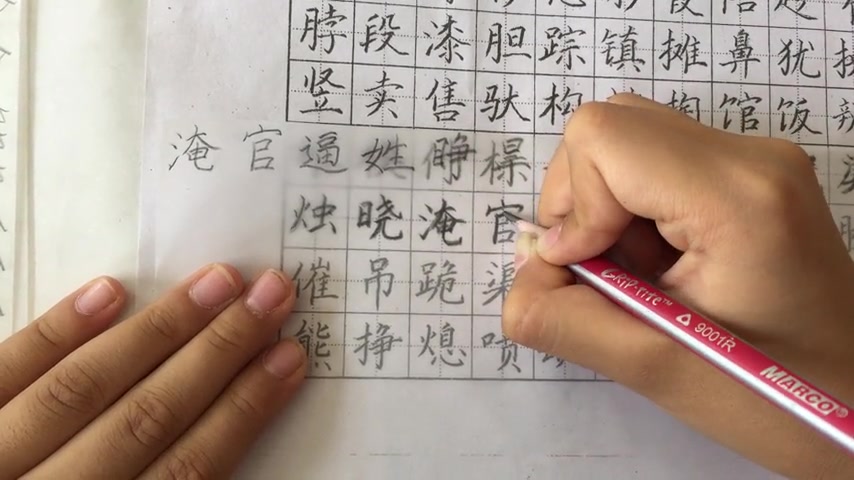 脖段漆胆踪镇摊鼻犹
竖卖售驮构 掏馆饭辨
淹官逼姓睁棵
烛晓淹官
催吊跪渠
熊挣熄喷
GRIP-RITE™ 9001R MARCO®